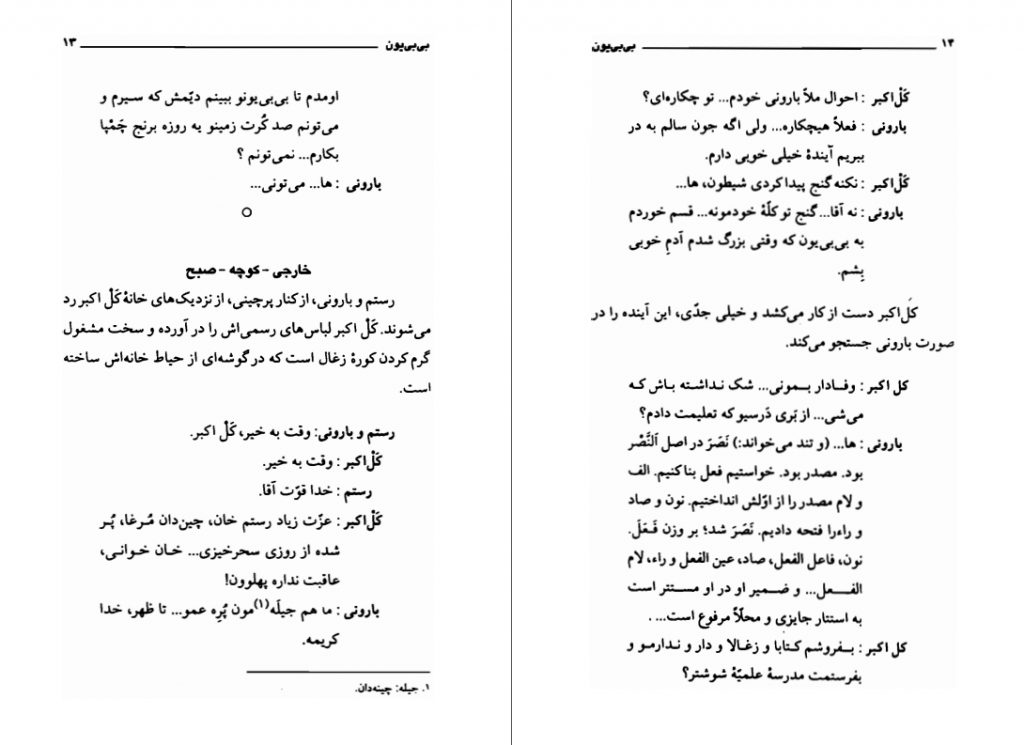 بی‌بی‌یون ۱۳
اومدم تا بی‌بی‌یونو ببینم دیّمش که سیرم و
می‌تونم صد کُرت زمینو یه روزه برنج چَمْپا
بکارم... نمی‌تونم ؟
بارونی : ها... می‌تونی...
خارجی - کوچه - صبح
رستم و بارونی، از کنار پرچینی، از نزدیک‌های خانهٔ کَلْ اکبر رد
می‌شوند. کَلْ اکبر لباس‌های رسمی‌اش را در آورده و سخت مشغول
گرم کردن کورهٔ زغال است که در گوشه‌ای از حیاط خانه‌اش ساخته
است.
رستم و بارونی: وقت به خیر، کَلْ اکبر.
کَلْ‌اکبر : وقت به خیر.
رستم : خدا قوّت آقا.
کَلْ‌اکبر : عزّت زیاد رستم خان، چین‌دان مُرغا، پُر
شده از روزی سحرخیزی... خان خوانی،
عاقبت نداره پهلوون!
بارونی : ما هم جیلَه(۱)مون پُرِه عمو... تا ظهر، خدا
کریمه.
۱. جیله: چینه‌دان.
۱۴ بی‌بی‌یون
کَلْ‌اکبر : احوال ملاّ بارونی خودم... تو چکاره‌ای؟
بارونی : فعلاً هیچکاره... ولی اگه جون سالم به در
ببریم آیندهٔ خیلی خوبی دارم.
کَلْ‌اکبر : نکنه گنج پیدا کردی شیطون، ها...
بارونی : نه آقا...گنج تو کلّهٔ خودمونه... قسم خوردم
به بی‌بی‌یون که وقتی بزرگ شدم آدمِ خوبی
بِشم.
کَل‌اکبر دست از کار می‌کشد و خیلی جدّی، این آینده را در
صورت بارونی جستجو می‌کند.
کل اکبر : وفادار بمونی... شک نداشته باش که
می‌شی... از بَری دَرسیو که تعلیمت دادم؟
بارونی : ها... (و تند می‌خواند:) نَصَرَ در اصل اَلنَّصْر
بود. مصدر بود. خواستیم فعل بناکنیم. الف
و لام مصدر را از اوّلش انداختیم. نون و صاد
و راءرا فتحه دادیم. نَصَرَ شد؛ بر وزن فَعَلَ.
نون، فاعل الفعل، صاد، عین الفعل و راء، لام
الفعل... و ضمیر او در او مستتر است
به استتار جایزی و محلاً مرفوع است... .
کل اکبر : بفروشم کتابا و زغالا و دار و ندارمو و
بفرستمت مدرسهٔ علمیّهٔ شوشتر؟